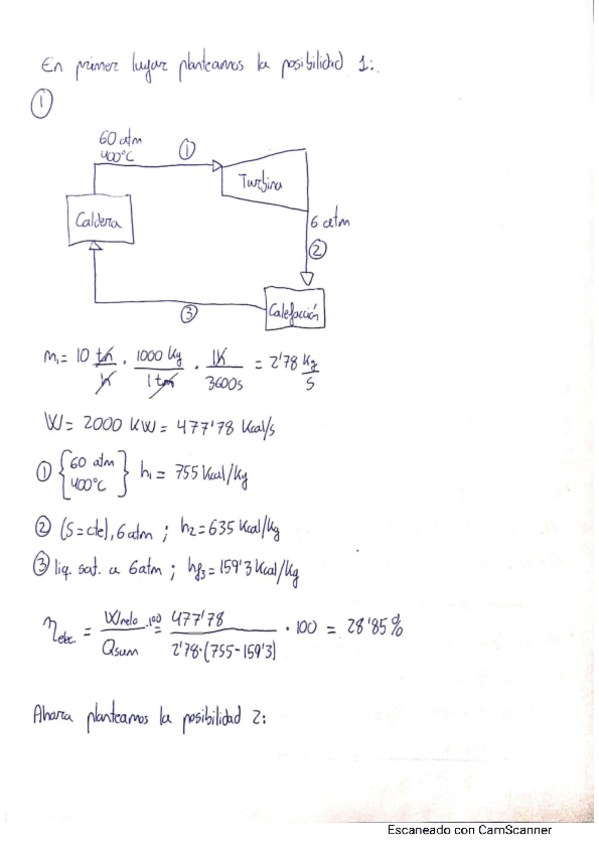 En primer lugar planteamos la posibilidad 1:.
①
60 atm
400°C
①
Turbina
Caldera
6 atm
②
Calefacción
③
m₁= 10 tn/h · 1000 Kg/1 tn · 1h/3600s = 2'78 Kg/s
W= 2000 KW = 477'78 Kcal/s
① {60 atm 400°C} h₁= 755 Kcal/Kg
② (S=cte), 6 atm ; h₂=635 Kcal/Kg
③ liq. sat. a 6atm ; hf₃=159'3 Kcal/Kg
η elec. = Wneto/Qsum ·100 = 477'78/2'78·(755-159'3) · 100 = 28'85%
Ahora planteamos la posibilidad 2:
Escaneado con CamScanner